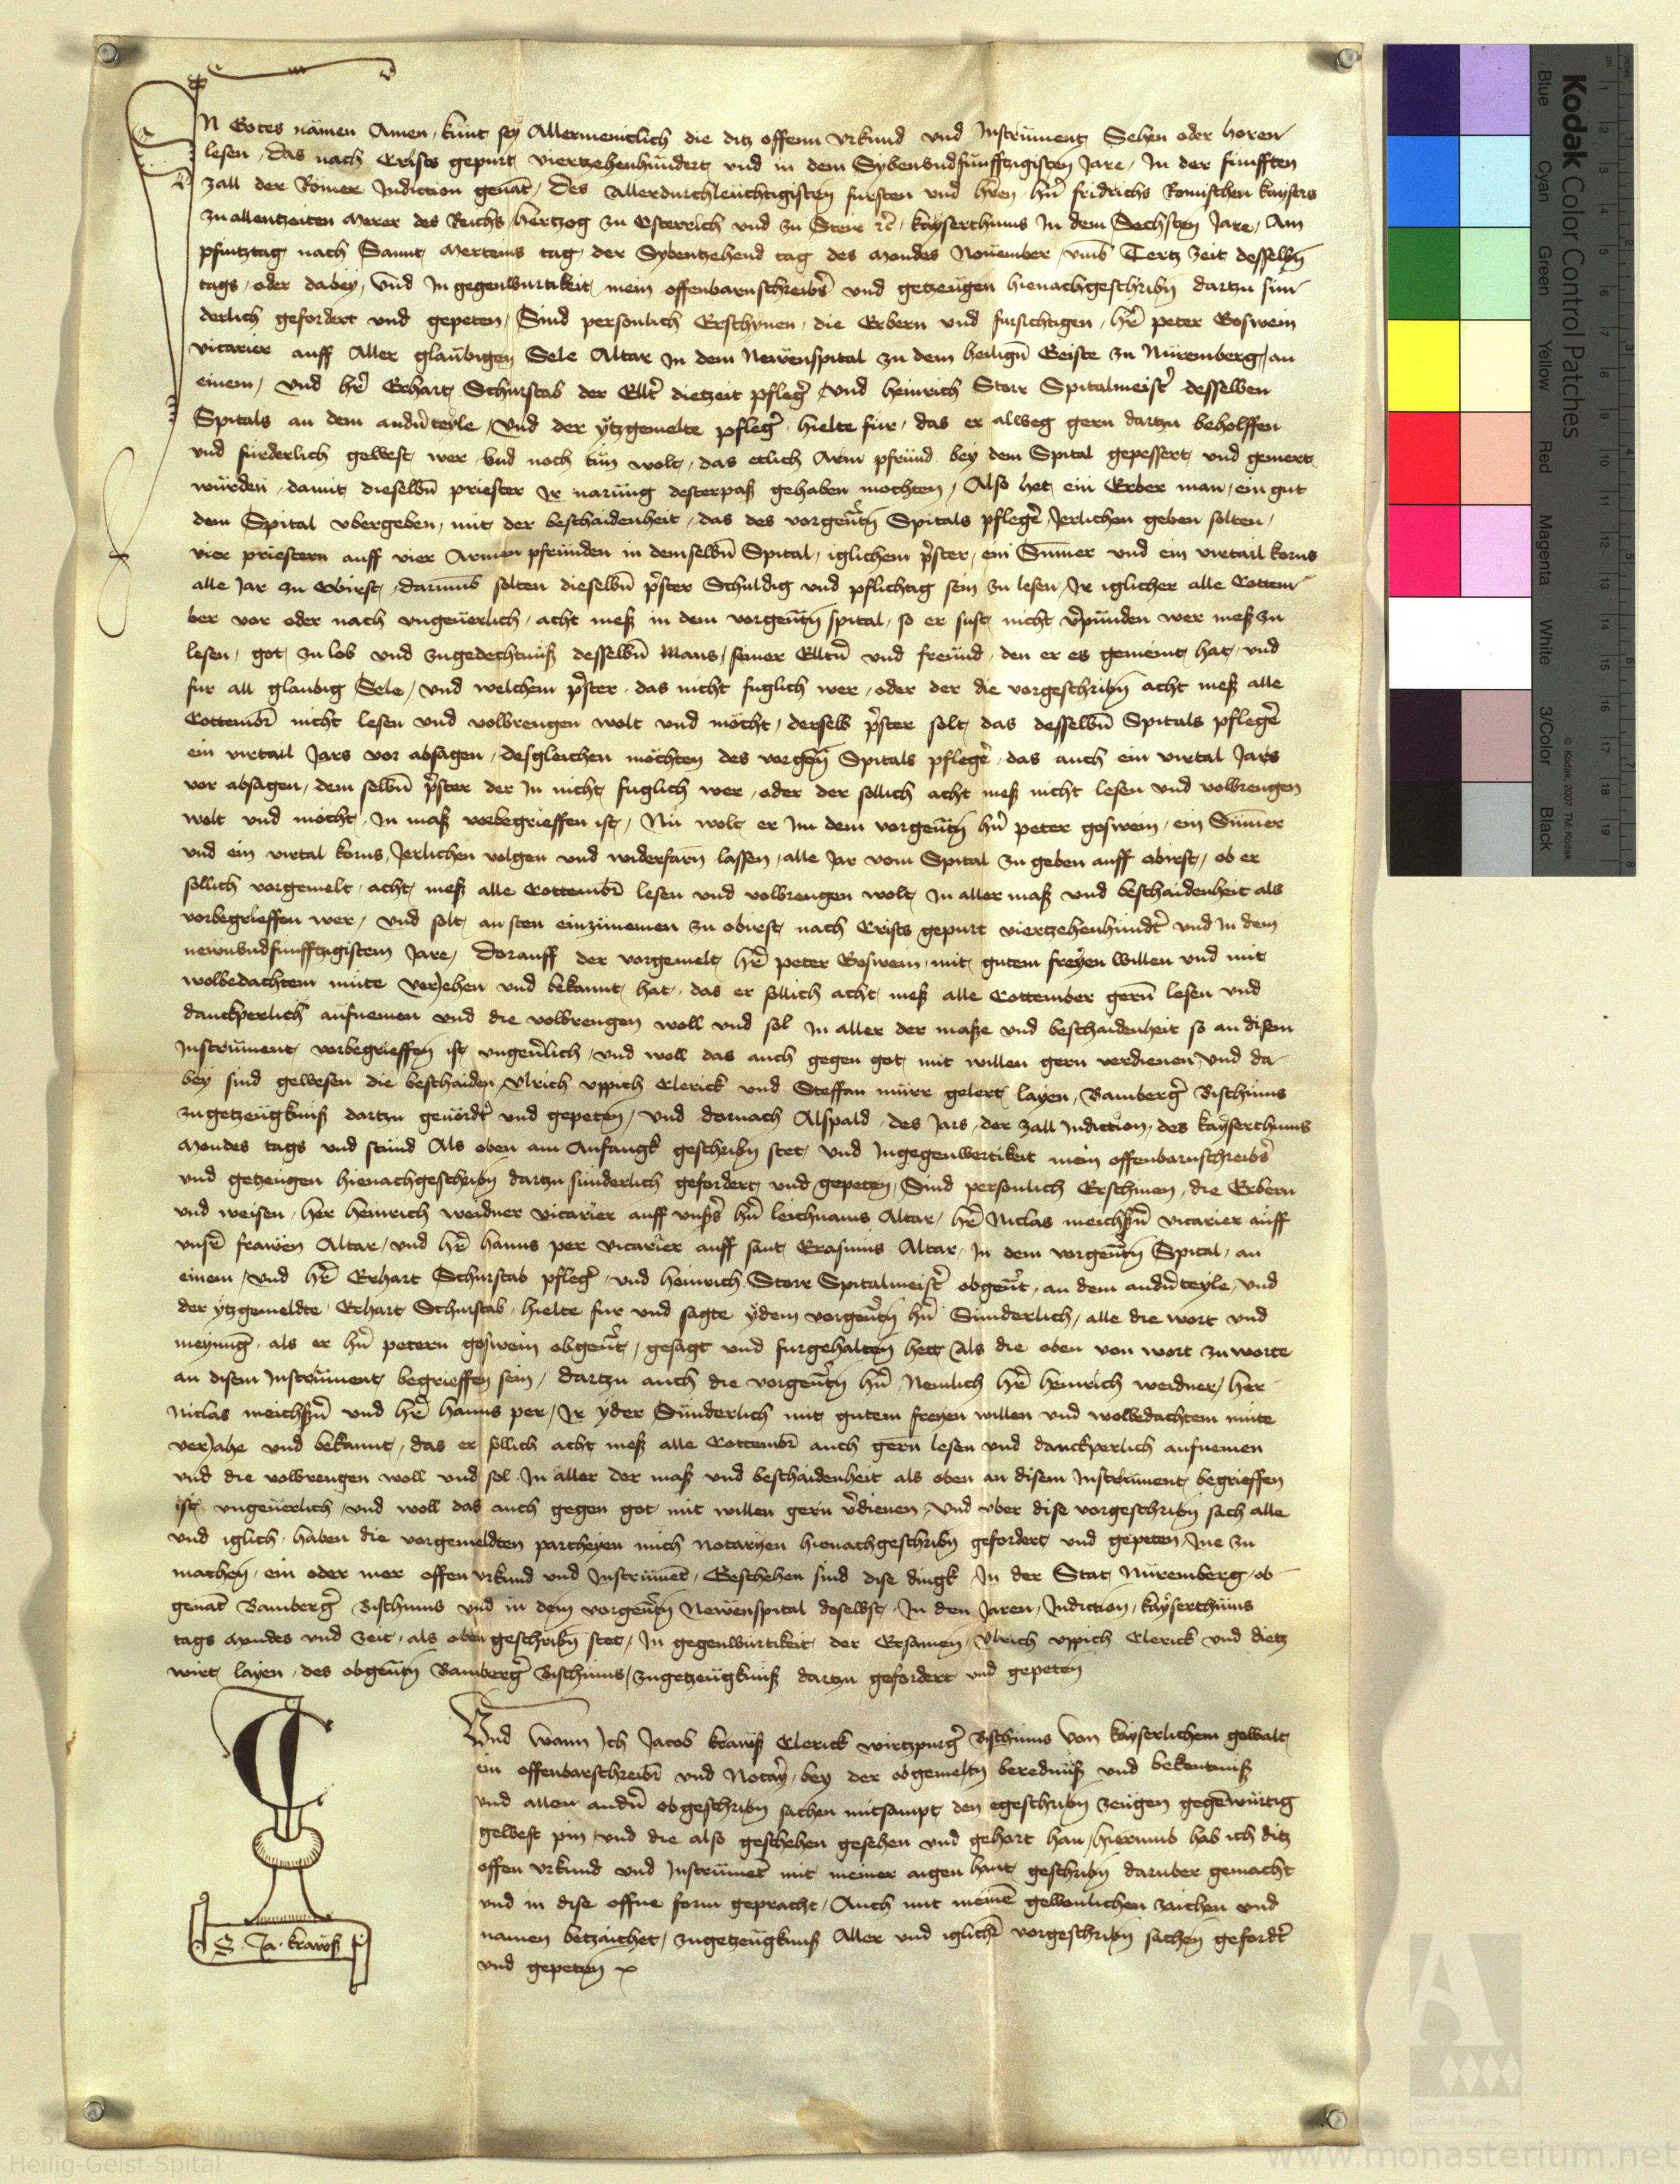 In Gotes namen Amen, kunt sey Allermeniclich die ditz offenn vrkund vnd Instrument Sehen oder horen
lesen, das nach Crists gepurt viertzehenhundert vnd in dem Sybenvndfunfftzigisten Jare, In der funfften
zall der Römer Indiction genāt, Des Allerdurchleuchtigisten fursten vnd hrēn hrn̄ fridrichs Romischen kaysers
zuallentzeiten Merer des Reichs, hertzog zu Osterreich vnd zu Steir ꝛc̄, kayserthums In dem Sechsten Jare, Am
pfintztag nach Sannt Mertens tag der Sybentzehend tag des Mondes Nouember, vmb Tertz Zeit desselbn̄
tags, oder dabey, Vnd In gegenwurtikeit mein offenbarnschreibr̄s vnd getzeugen hienachgeschribn̄ dartzu sun
derlich gefordert vnd gepeten, Sind personlich Erschynen, die Erbern vnd fursichtigen, hr̄e peter Goswein
vicarier auff Aller glaubigen Sele Altar In dem Newenspital zu dem heilign̄ Geiste zu Nuremberg, an
einem, vnd hr̄e Erhart Schurstab der Ellt̄ dietzeit pfleḡ vnd heinrich Storr Spitalmeist̄ desselben
Spitals an dem andn̄ teyle, Vnd der ytzgemelte pfleḡ, hielte fur, das er alweg gern dartzu beholffen
vnd furderlich gewest wer, vnd noch tun wolt, das etlich Arm pfrund bey dem Spital gepessert vnd gemert
wurden, damit dieselbn̄ priester Ir narung desterpaß gehaben mochten, Also het ein Erber man, ein gut
dem Spital vbergeben, mit der beschaidenheit, das des vorgen̄tn̄ Spitals pfleḡe, Jerlichen geben solten,
vier priestern auff vier Armen pfrunden in demselbn̄ Spital, iglichem pr̄ster, ein Sum̄er vnd ein virtail korns
alle Jar zu Obirst, darumb solten dieselbn̄ pr̄ster Schuldig vnd pflichtig sein zu lesen, Ir iglicher alle Cottem
ber vor oder nach vngeuerlich, acht meß in dem vorgen̄tn̄ spital, so er sust nicht v̄punden wer meß zu
lesen, got zu lob vnd zugedechtnuß desselbn̄ Mans, seiner Elltn̄ vnd freund, den er es gemeint hat, vnd
fur all glaubig Sele, vnd welchem pr̄ster, das nicht fuglich wer, oder der die vorgeschribn̄ acht meß alle
Cottembr̄ nicht lesen vnd volbrengen wolt vnd möcht, derselb pr̄ster solt, das desselbn̄ Spitals pfleḡe
ein virtail Jars vor absagen, desgleichen möchten des vorgen̄tn̄ Spitals pfleḡe, das auch ein virtal Jars
vor absagen, dem selbn̄ pr̄ster der In nicht fuglich wer, oder der sollich acht meß nicht lesen vnd volbrengen
wolt vnd mocht, In maß vorbegrieffen ist, Nu wolt er Im dem vorgen̄tn̄ hn̄ peter goswein, ein Sum̄er
vnd ein virtal korns, Jerlichen volgen vnd widerfarn̄ lassen, alle Jar vom Spital zu geben auff obirst, ob er
sollich vorgemelt, acht meß alle Cottembr̄ lesen vnd volbrengen wolt, In aller maß vnd beschaidenheit als
vorbegrieffen wer, vnd solt, an sten einzunemen zu obirst nach Crists gepurt viertzehenhundt̄ vnd In dem
newnvndfunfftzigistem Jare, Dorauff der vorgemelt hr̄e peter Goswein, mit gutem freyen willen vnd mit
wolbedachtem mute verjehen vnd bekannt hat, das er sollich acht meß alle Cottember gern̄ lesen vnd
danckperlich aufnemen vnd die volbrengen woll vnd sol In aller der masse vnd beschaidenheit so an disem
Instrument vorbegrieffen ist vngeu̇lich, vnd woll das auch gegen got mit willen gern verdienen, vnd da
bey sind gewesen die beschaiden, Vlrich vppich Clerick vnd Steffan mürr gelert layen, Bamberḡ Bischtums
zugetzeugknuß dartzu geuordt̄ vnd gepeten, vnd darnach Alspald, des Jars, der zall Indiction, des kayserthums
Mondes tags vnd stund Als oben am Anfangk geschribn̄ stet, vnd Ingegenwertikeit mein offenbarnschreibr̄s
vnd getzeugen hienachgeschribn̄ dartzu sunderlich gefordert vnd gepeten, Sind personlich Erschinen, die Erbern
vnd weisen, her heinrich weidner vicarier auff vnsr̄s hn̄ leichnams Altar, hr̄e Niclas meichsn̄ vicarier auff
vnsr̄e frawen Altar, vnd hr̄e hanns per vicarier auff sant Erasmus Altar, In dem vorgen̄tn̄ Spital, an
einem, vnd hr̄e Erhart Schurstab pfleḡ, vnd heinrich Storr Spitalmeist̄ obgen̄t, an dem andn̄ teyle, vnd
der ytzgemeldte, Erhart Schurstab, hielte fur vnd sagte ydem vorgen̄tn̄ hn̄ Sunderlich, alle die wort vnd
meynung, als er hn̄ petern goswein obgen̄t, gesagt vnd furgehalten hett Als die oben von wort zuworte
an disem Instrument begrieffen sein, dartzu auch die vorgen̄tn̄ hn̄, Nemlich hr̄e heinrich weidner, her
Niclas meichsn̄ vnd hr̄e hanns per, Ir yder Sunderlich mit gutem freyen willen vnd wolbedachtem mute
verjahe vnd bekannt, das er sollich acht meß alle Cottembr̄ auch gern lesen vnd danckperlich aufnemen
vnd die volbrengen woll vnd sol, In aller der maß vnd beschaidenheit als oben an disem Instrument begrieffen
ist vngeuerlich, vnd woll das auch gegen got mit willen gern v̄dienen, Vnd vber dise vorgeschribn̄ sach alle
vnd iglich, haben die vorgemeldten partheyen mich Notaryen hienachgeschribn̄ gefordert vnd gepeten, Ine zu
machen, ein oder mer offen vrkund vnd Instrumēt, Geschehen sind dise dingk In der Stat Nuremberg, ob
genāt Bamberḡ Bischtumbs vnd in dem vorgen̄tn̄ Newenspital doselbst, In den Jaren, Indiction, kayserthums
tags Mondes vnd Zeit, als oben geschribn̄ stet, In gegenwurtikeit der Ersamen, Vlrich vppich Clerick vnd dietz
wirt layen, des obgen̄tn̄ Bamberḡ Bischtums, zugetzeugknuß dartzu gefordert vnd gepeten
Vnd wann Ich Jacob krawß Clerick wirtzpurḡ Bischtums von kayserlichem gewalt
ein offenbarschreibr̄ vnd Notari, bey der obgemeltn̄ berednuß vnd bekentnuß
vnd allen andn̄ obgeschribn̄ sachen mitsampt den egeschribn̄ zeugen gegēwürtig
gewest pin, vnd die also geschehen gesehen vnd gehort han, hierumb hab ich ditz
offen vrkund vnd Instrumēt mit meiner aigen hant geschribn̄ daruber gemacht
vnd in dise offne form gepracht, Auch mit meinē gewonlichen zaichen vnd
namen betzaichet, zugetzeugknuß Aller vnd iglichr̄ vorgeschribn̄ sachen gefordt̄
vnd gepeten
S. Ja. krawß
Kodak Color Control Patches
Blue Cyan Green Yellow Red Magenta White 3/Color Black
© Kodak, 2007 TM: Kodak
Heilig-Geist-Spital
www.monasterium.net